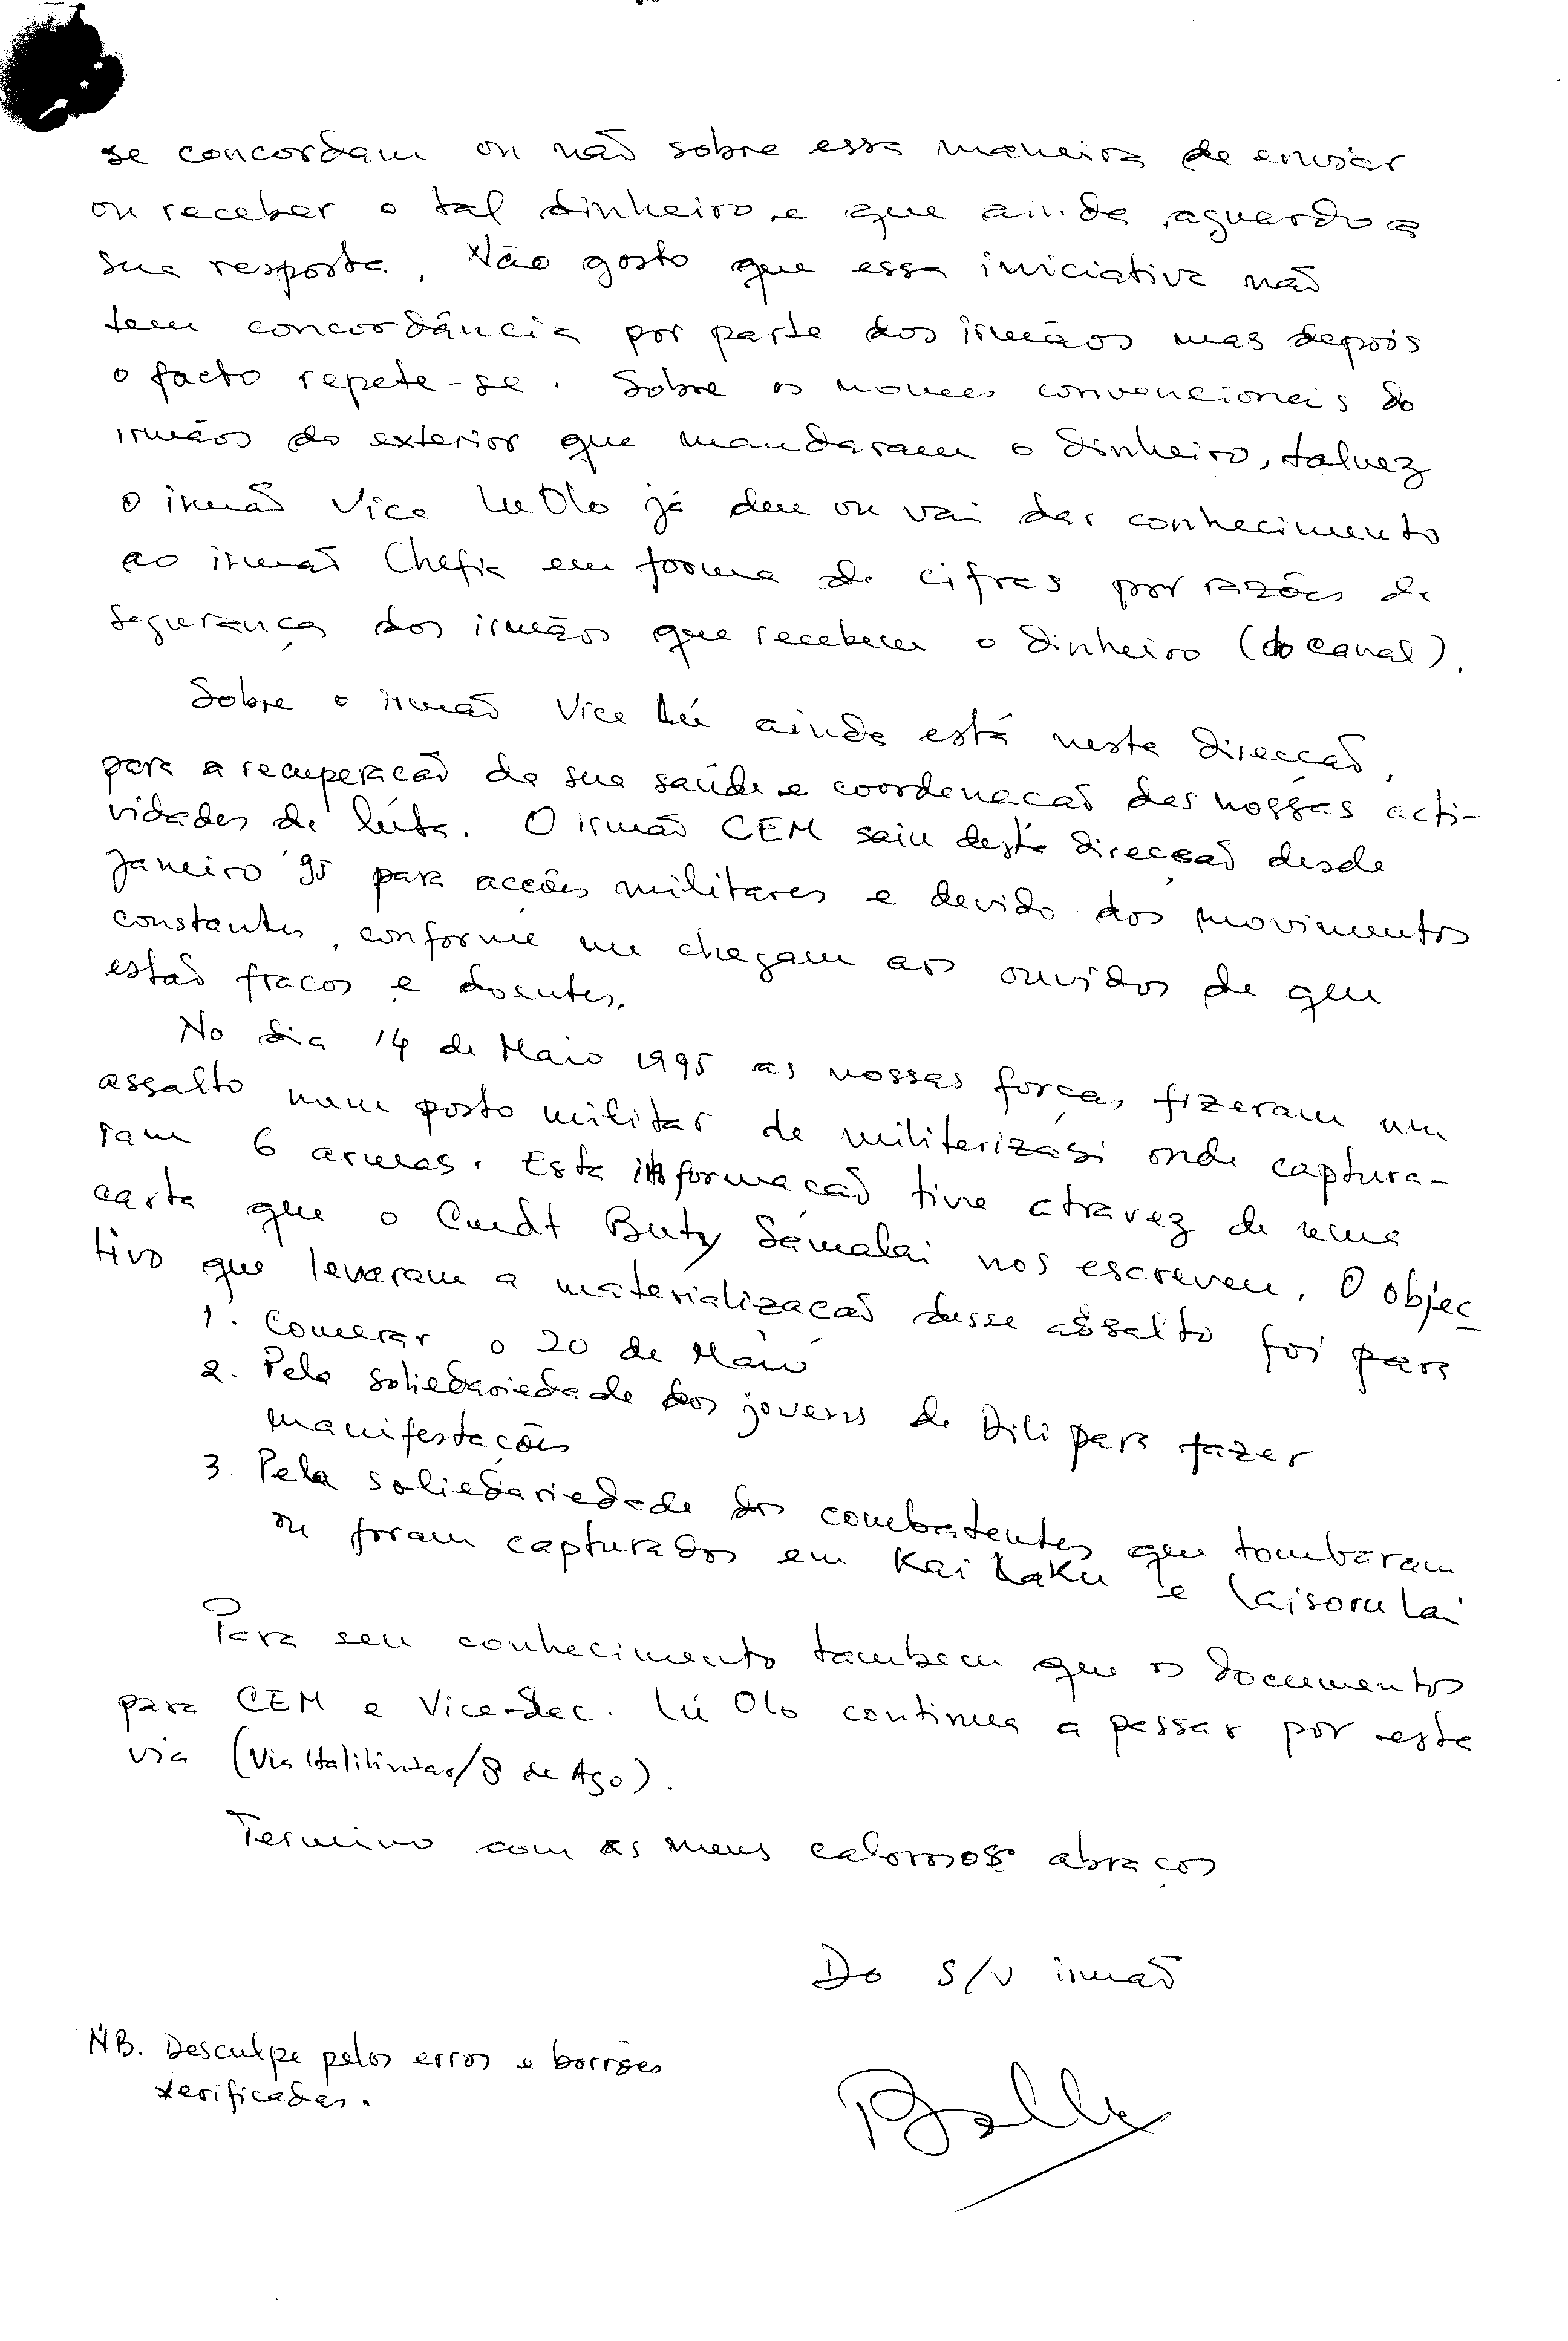 se concordam ou não sobre essa maneira de enviar
ou receber o tal dinheiro e que ainda aguardo a
sua resposta, Não gosto que essa iniciativa não
tem concordância por parte dos irmãos mas depois
o facto repete-se. Sobre os nomes convencionais do
irmãos do exterior que mandaram o dinheiro, talvez
o irmão Vice Lu Olo já deu ou vai dar conhecimento
ao irmão Chefia em forma de cifras por razões de
segurança dos irmãos que recebem o dinheiro (do canal).
Sobre o irmão Vice Lú ainda está nesta direcção,
para a recuperacão da sua saúde e coordenacão das nossas acti-
vidades de luta. O irmão CEM saiu desta direccão desde
Janeiro 95 para accões militares e devido dos movimentos
constantes, conforme me chegam aos ouvidos de que
estão fracos e doentes.
No dia 14 de Maio 1995 as nossas forças fizeram um
assalto num posto militar de militerizasi onde captura-
ram 6 armas. Esta informacão tive atravez de uma
carta que o Cmdt Buty Sámalai nos escreveu. O objec
tivo que levaram a materializacão desse assalto foi para
1. Comerar o 20 de Maio
2. Pela soliedariedade dos jovens de Dili para fazer
manifestações
3. Pela soliedariedade dos combatentes que tombaram
ou foram capturados em Kai Laku e Laisorulai
Para seu conhecimento tambem que os documentos
para CEM e Vice-Sec. Lú Olo continua a passar por este
via (Via Halilintar/8 de Ago).
Termino com os meus calorosos abraços
Do S/V irmão
NB. Desculpe pelos erros e borrões
verificadas.